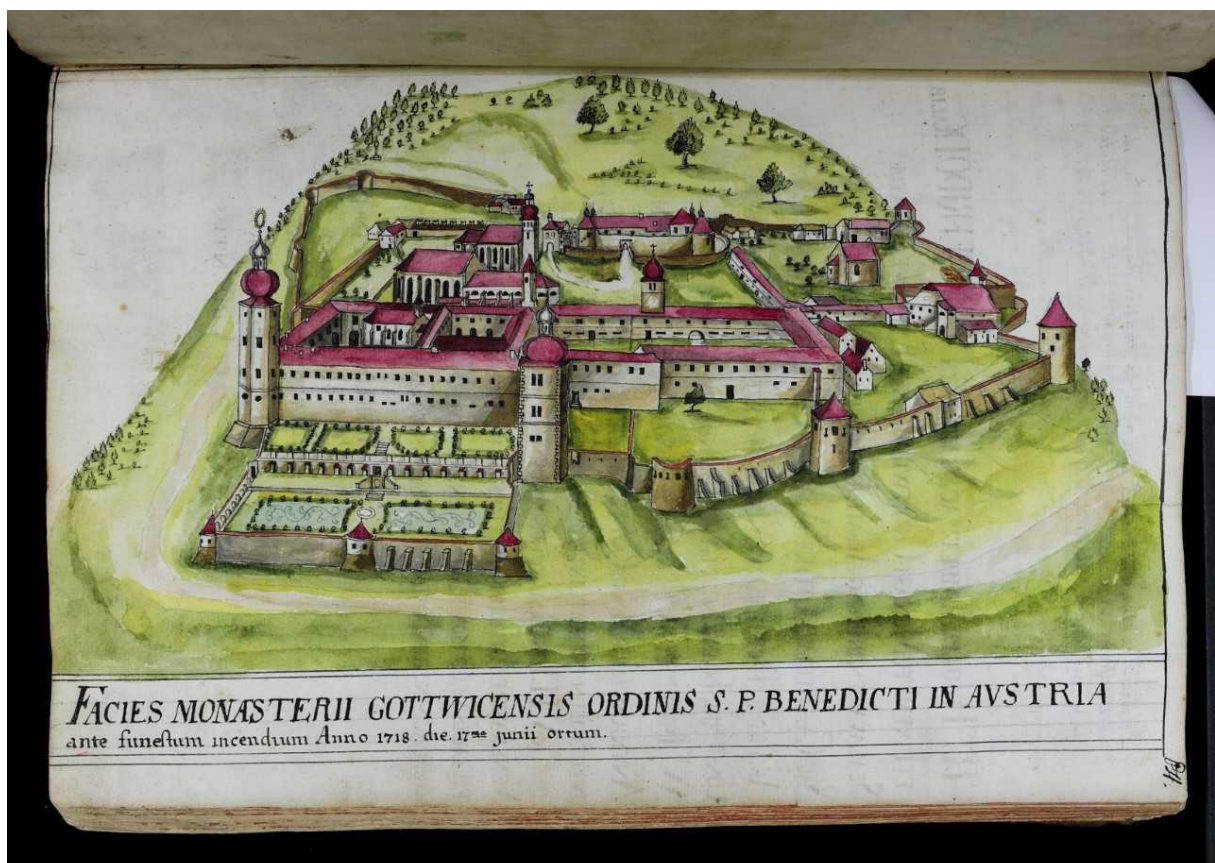 FACIES MONASTERII GOTTWICENSIS ORDINIS S. P. BENEDICTI IN AVSTRIA
ante funestum incendium Anno 1718. die. 17mâ junii ortum.